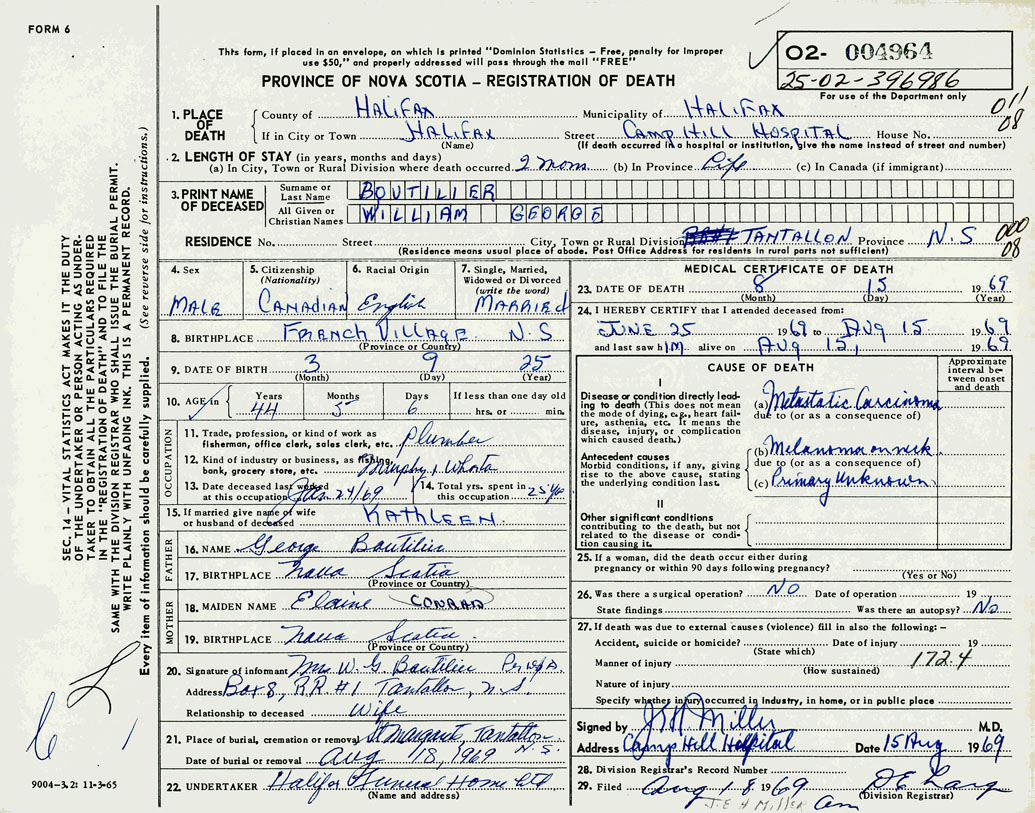 FORM 6
This form, if placed in an envelope, on which is printed "Dominion Statistics – Free, penalty for improper
use $50," and properly addressed will pass through the mail "FREE"
PROVINCE OF NOVA SCOTIA – REGISTRATION OF DEATH
02- 004964
25-02-396986
For use of the Department only
011
08
1. PLACE OF DEATH
County of HALIFAX Municipality of HALIFAX
If in City or Town HALIFAX Street CAMP HILL HOSPITAL House No.
(Name) (If death occurred in a hospital or institution, give the name instead of street and number)
2. LENGTH OF STAY (in years, months and days)
(a) In City, Town or Rural Division where death occurred 2 mons. (b) In Province Life (c) In Canada (if immigrant)
3. PRINT NAME OF DECEASED
Surname or Last Name BOUTILIER
All Given or Christian Names WILLIAM GEORGE
RESIDENCE No. Street City, Town or Rural Division TANTALLON Province N.S
(Residence means usual place of abode. Post Office Address for residents in rural parts not sufficient)
000
08
4. Sex MALE
5. Citizenship (Nationality) CANADIAN
6. Racial Origin English
7. Single, Married, Widowed or Divorced (write the word) MARRIED
8. BIRTHPLACE FRENCH VILLAGE N S
(Province or Country)
9. DATE OF BIRTH 3 9 25
(Month) (Day) (Year)
10. AGE in Years 44 Months 5 Days 6 If less than one day old hrs. or min.
OCCUPATION
11. Trade, profession, or kind of work as fisherman, office clerk, sales clerk, etc. Plumber
12. Kind of industry or business, as fishing, bank, grocery store, etc. Murphy &
13. Date deceased last worked at this occupation 24/69
14. Total yrs. spent in this occupation 25
15. If married give name of wife or husband of deceased KATHLEEN
FATHER
16. NAME George Boutilier
17. BIRTHPLACE Nova Scotia
(Province or Country)
MOTHER
18. MAIDEN NAME Elaine CONRAD
19. BIRTHPLACE Nova Scotia
(Province or Country)
20. Signature of informant Mrs W. G. Boutilier Per
Address Box 8, RR #1 Tantallon, N.S.
Relationship to deceased Wife
21. Place of burial, cremation or removal St Margaret Tantallon N.S.
Date of burial or removal Aug 18, 1969
22. UNDERTAKER Halifax Funeral Home Ltd
(Name and address)
MEDICAL CERTIFICATE OF DEATH
23. DATE OF DEATH 8 15 1969
(Month) (Day) (Year)
24. I HEREBY CERTIFY that I attended deceased from:
JUNE 25 1969 to AUG 15 1969
and last saw him alive on AUG 15, 1969.
CAUSE OF DEATH
Approximate interval between onset and death
I
Disease or condition directly leading to death (This does not mean the mode of dying, e.g., heart failure, asthenia, etc. It means the disease, injury, or complication which caused death.)
(a) Metastatic Carcinoma
due to (or as a consequence of)
Antecedent causes
Morbid conditions, if any, giving rise to the above cause, stating the underlying condition last.
(b) Melanoma on neck
due to (or as a consequence of)
(c) Primary Unknown
II
Other significant conditions contributing to the death, but not related to the disease or condition causing it.
25. If a woman, did the death occur either during
pregnancy or within 90 days following pregnancy?
(Yes or No)
26. Was there a surgical operation? NO Date of operation 19
State findings Was there an autopsy? No
27. If death was due to external causes (violence) fill in also the following:–
Accident, suicide or homicide? Date of injury 19
(State which)
Manner of injury 172.4
(How sustained)
Nature of injury
Specify whether injury occurred in Industry, in home, or in public place
Signed by JEH Miller M.D.
Address Camp Hill Hospital Date 15 Aug 1969
28. Division Registrar's Record Number
29. Filed Aug 18 1969
(Division Registrar)
J.E H MILLER
SEC. 14 – VITAL STATISTICS ACT MAKES IT THE DUTY
OF THE UNDERTAKER OR PERSON ACTING AS UNDER-
TAKER TO OBTAIN ALL THE PARTICULARS REQUIRED
IN THE "REGISTRATION OF DEATH" AND TO FILE THE
SAME WITH THE DIVISION REGISTRAR WHO SHALL ISSUE THE BURIAL PERMIT.
WRITE PLAINLY WITH UNFADING INK. THIS IS A PERMANENT RECORD.
Every item of information should be carefully supplied. (See reverse side for instructions.)
9004–3.2: 11-3-65